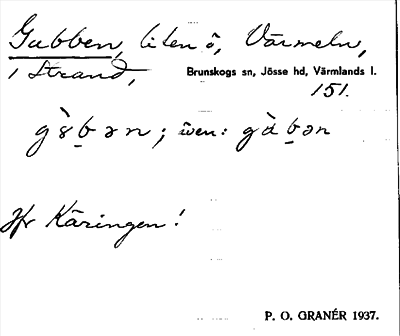 Gubben, liten ö, Värmeln,
i Strand,
Brunskogs sn, Jösse hd, Värmlands l.
151.
gɤ̀b̲ən; även: gàb̲ən
Jfr Käringen!
P. O. GRANÉR 1937.